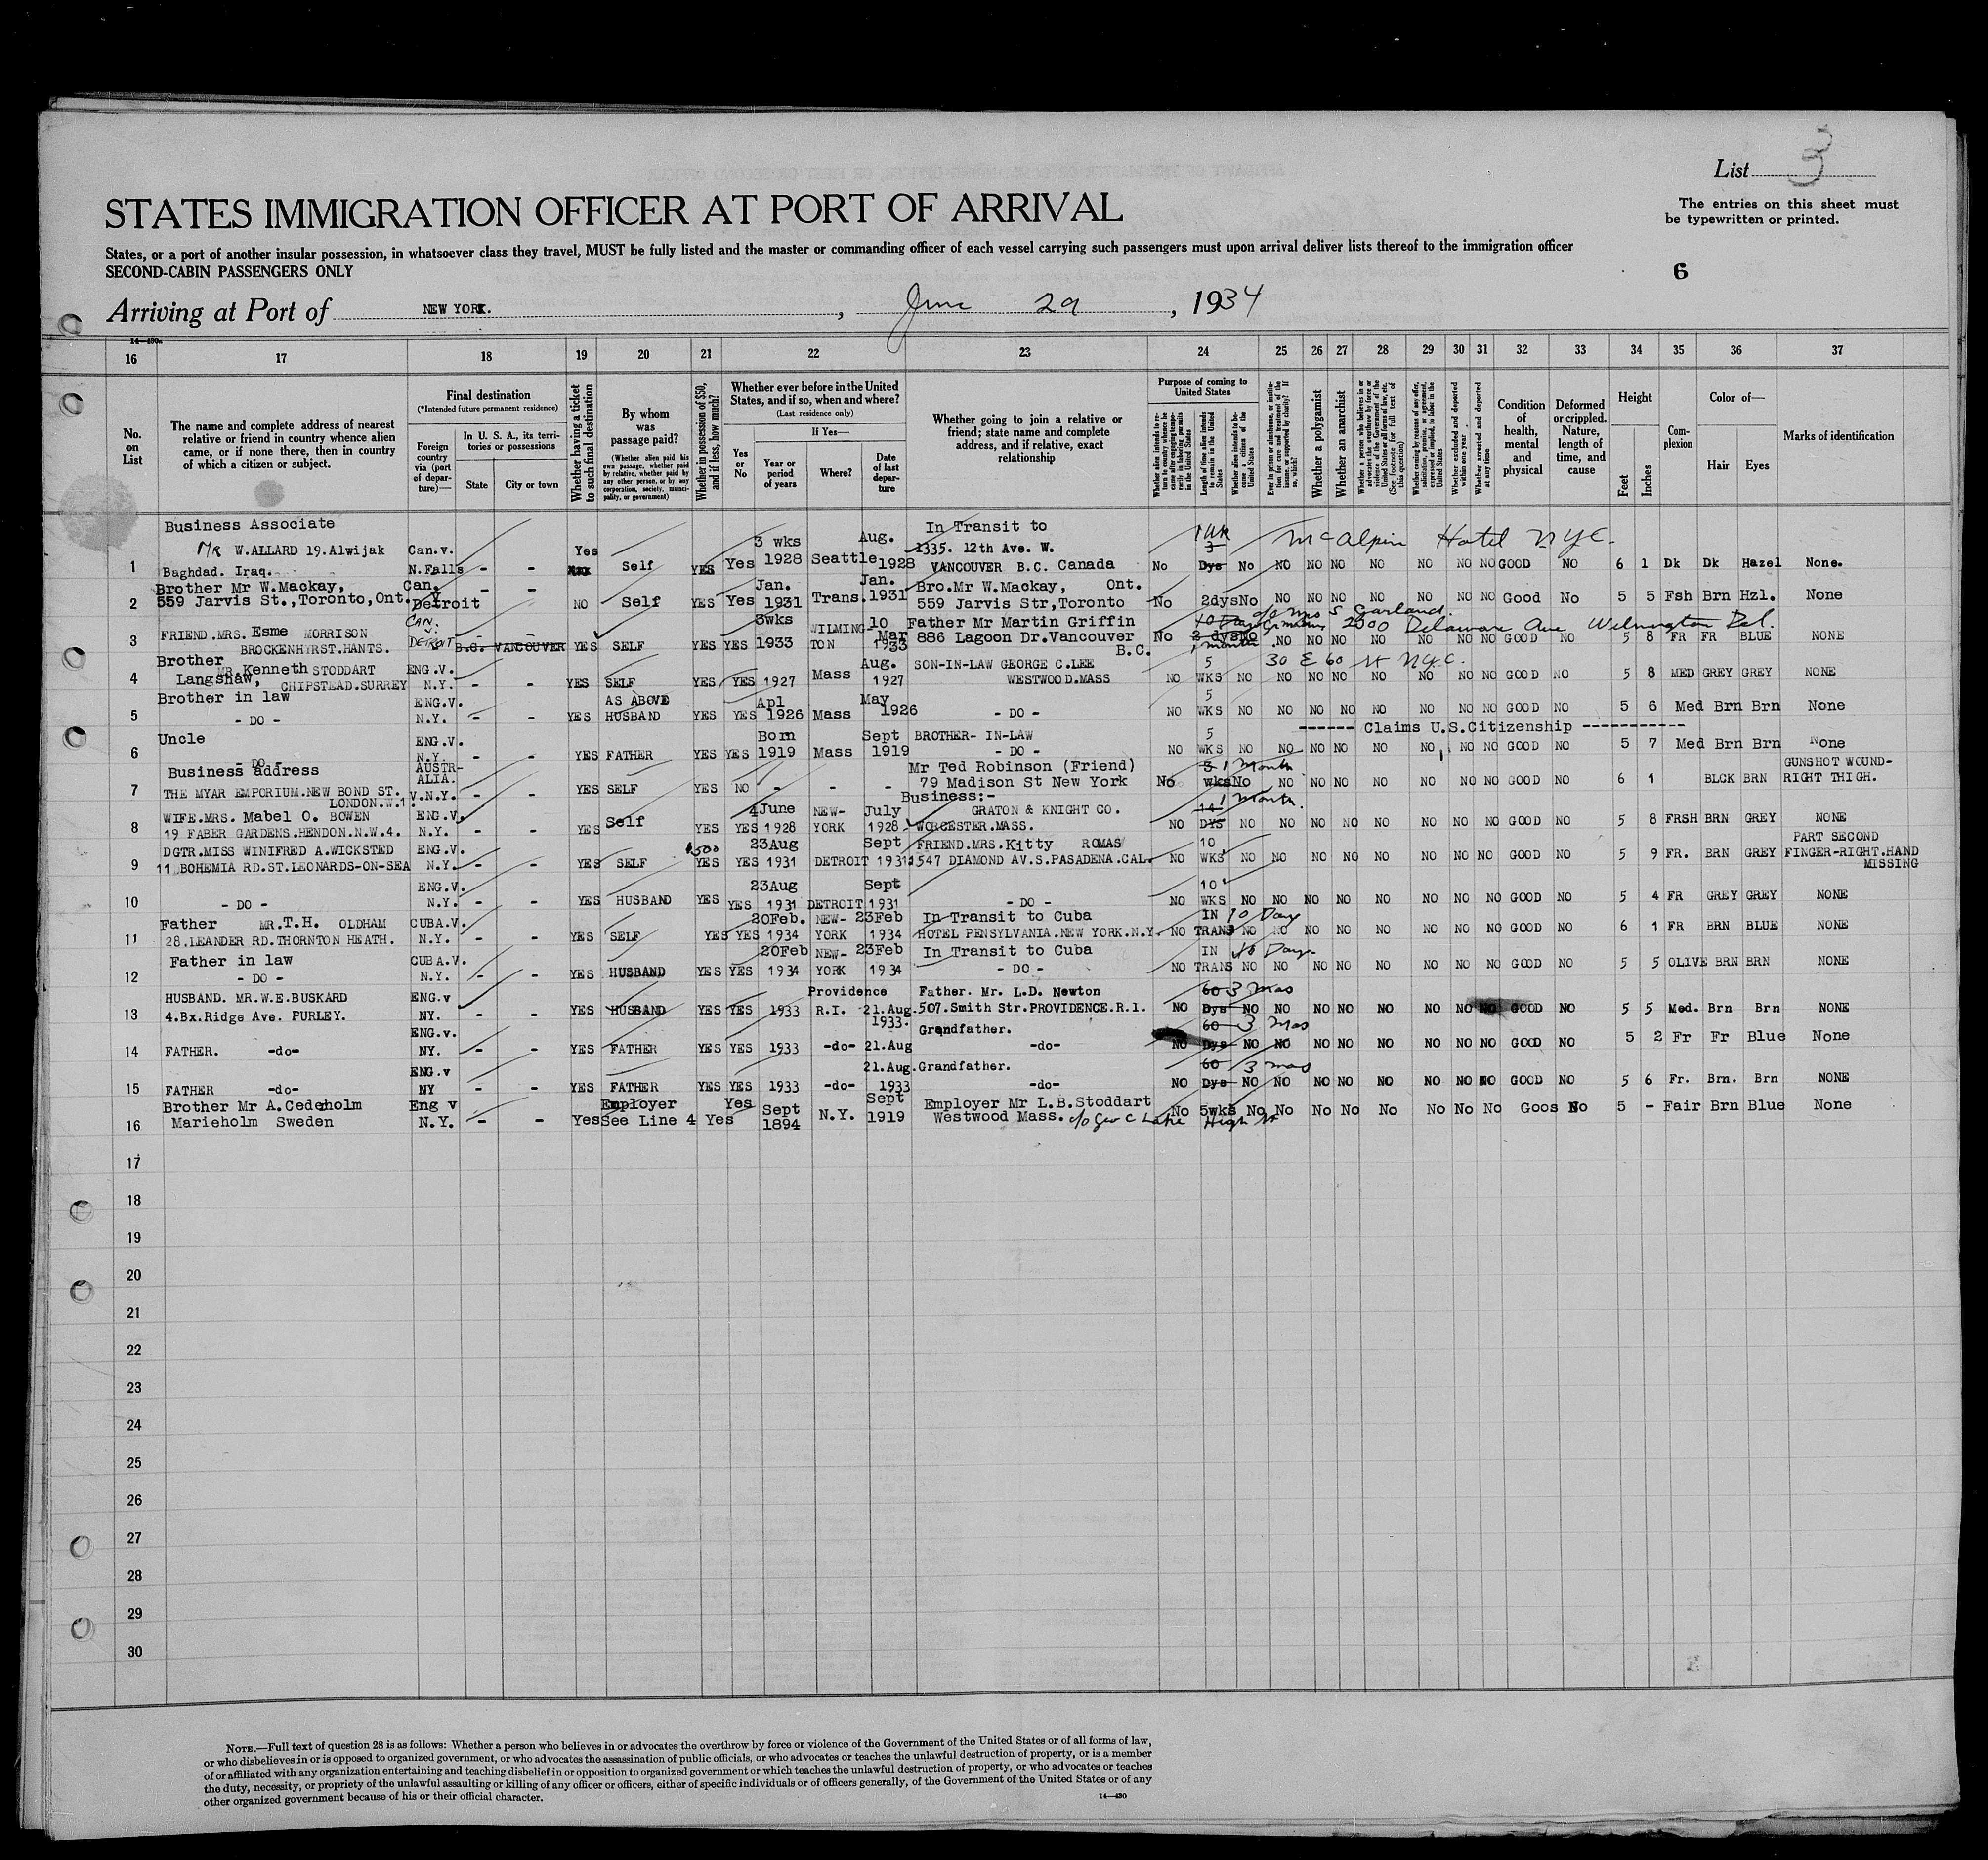 List 3
STATES IMMIGRATION OFFICER AT PORT OF ARRIVAL
The entries on this sheet must
be typewritten or printed.
States, or a port of another insular possession, in whatsoever class they travel, MUST be fully listed and the master or commanding officer of each vessel carrying such passengers must upon arrival deliver lists thereof to the immigration officer
SECOND-CABIN PASSENGERS ONLY
6
Arriving at Port of NEW YORK. , June 29 , 1934
14—430a
16 17 18 19 20 21 22 23 24 25 26 27 28 29 30 31 32 33 34 35 36 37
No. on List
The name and complete address of nearest
relative or friend in country whence alien
came, or if none there, then in country
of which a citizen or subject.
Final destination
(*Intended future permanent residence)
Foreign country via (port of departure)—
In U. S. A., its territories or possessions
State City or town
Whether having a ticket to such final destination
By whom was passage paid?
(Whether alien paid his own passage, whether paid by relative, whether paid by any other person, or by any corporation, society, municipality, or government)
Whether in possession of $50, and if less, how much?
Whether ever before in the United
States, and if so, when and where?
(Last residence only)
Yes or No
If Yes—
Year or period of years
Where?
Date of last departure
Whether going to join a relative or
friend; state name and complete
address, and if relative, exact
relationship
Purpose of coming to United States
Whether alien intends to return to country whence he came after engaging temporarily in laboring pursuits in the United States
Length of time alien intends to remain in the United States
Whether alien intends to become a citizen of the United States
Ever in prison or almshouse, or institution for care and treatment of the insane, or supported by charity? If so, which?
Whether a polygamist
Whether an anarchist
Whether a person who believes in or advocates the overthrow by force or violence of the Government of the United States or all forms of law, etc. (See footnote for full text of this question)
Whether coming by reason of any offer, solicitation, promise, or agreement, expressed or implied, to labor in the United States
Whether excluded and deported within one year
Whether arrested and deported at any time
Condition of health, mental and physical
Deformed or crippled. Nature, length of time, and cause
Height
Feet Inches
Complexion
Color of—
Hair Eyes
Marks of identification
Business Associate In Transit to 1 Wk McAlpin Hotel NYC.
Mr W.ALLARD 19.Alwijak Can.v. Yes 3 wks Aug. 1335. 12th Ave. W. 3
1 Baghdad. Iraq. N.Falls - - Self YES Yes 1928 Seattle 1928 VANCOUVER B.C. Canada No Dys No NO NO NO NO NO NO NO GOOD NO 6 1 Dk Dk Hazel None.
Brother Mr W.Mackay, Can. - - Jan. Jan. Bro.Mr W.Mackay, Ont.
2 559 Jarvis St.,Toronto,Ont. v Detroit NO Self YES Yes 1931 Trans. 1931 559 Jarvis Str,Toronto No 2dys No NO NO NO NO NO NO NO Good No 5 5 Fsh Brn Hzl. None
CAN. v. 3wks 10 Father Mr Martin Griffin 10 Days c/o Mrs S Garland. 2000 Delaware Ave Wilmington Del.
3 FRIEND.MRS.Esme MORRISON DETROIT - - WILMING- Mar 886 Lagoon Dr.Vancouver No 2 dys No
BROCKENHRST.HANTS. B.C. VANCOUVER YES SELF YES YES 1933 TON 1933 B.C. 1 month NO NO NO NO NO NO NO GOOD NO 5 8 FR FR BLUE NONE
Brother
4 MR.Kenneth STODDART ENG.V. Aug. SON-IN-LAW GEORGE C.LEE 5 30 E 60 St N.Y.C.
Langshaw, CHIPSTEAD.SURREY N.Y. - - YES SELF YES YES 1927 Mass 1927 WESTWOOD.MASS NO WKS NO NO NO NO NO NO NO NO GOOD NO 5 8 MED GREY GREY NONE
Brother in law ENG.V. AS ABOVE Apl May 5
5 - DO - N.Y. - - YES HUSBAND YES YES 1926 Mass 1926 - DO - NO WKS NO NO NO NO NO NO NO NO GOOD NO 5 6 Med Brn Brn None
Uncle ENG.V. Born Sept BROTHER- IN-LAW 5 ------ Claims U.S.Citizenship -----------
6 - DO - N.Y. YES FATHER YES YES 1919 Mass 1919 - DO - NO WKS NO NO NO NO NO NO NO NO GOOD NO 5 7 Med Brn Brn None
Business address AUSTR-ALIA. Mr Ted Robinson (Friend) 3 1 Month GUNSHOT WOUND-
7 THE MYAR EMPORIUM.NEW BOND ST. V.N.Y. - - YES SELF YES NO - - - 79 Madison St New York No wks No NO NO NO NO NO NO NO GOOD NO 6 1 BLCK BRN RIGHT THIGH.
LONDON.W.1. Business:-
WIFE.MRS. Mabel O. BOWEN ENG.V. 4June NEW- July GRATON & KNIGHT CO. 14 1 Month.
8 19 FABER GARDENS.HENDON.N.W.4. N.Y. - - YES Self YES YES 1928 YORK 1928 WORCESTER.MASS. NO DYS NO NO NO NO NO NO NO NO GOOD NO 5 8 FRSH BRN GREY NONE
DGTR.MISS WINIFRED A.WICKSTED ENG.V. $500 23Aug Sept FRIEND.MRS.Kitty ROMAS 10 PART SECOND
9 11 BOHEMIA RD.ST.LEONARDS-ON-SEA N.Y. - - YES SELF YES YES 1931 DETROIT 1931 1547 DIAMOND AV.S.PASADENA.CAL. NO WKS NO NO NO NO NO NO NO NO GOOD NO 5 9 FR. BRN GREY FINGER-RIGHT.HAND
MISSING
ENG.V. 23Aug Sept 10
10 - DO - N.Y. - - YES HUSBAND YES YES 1931 DETROIT 1931 - DO - NO WKS NO NO NO NO NO NO NO NO GOOD NO 5 4 FR GREY GREY NONE
Father MR.T.H. OLDHAM CUBA.V. 20Feb. NEW- 23Feb In Transit to Cuba IN 10 Days
11 28.LEANDER RD.THORNTON HEATH. N.Y. - - YES SELF YES YES 1934 YORK 1934 HOTEL PENSYLVANIA.NEW YORK.N.Y. NO TRANS NO NO NO NO NO NO NO NO GOOD NO 6 1 FR BRN BLUE NONE
Father in law CUBA.V. 20Feb NEW- 23Feb In Transit to Cuba IN 10 Days
12 - DO - N.Y. - - YES HUSBAND YES YES 1934 YORK 1934 - DO - NO TRANS NO NO NO NO NO NO NO NO GOOD NO 5 5 OLIVE BRN BRN NONE
HUSBAND. MR.W.E.BUSKARD ENG.v Providence Father. Mr. L.D. Newton 60 3 mos
13 4.Bx.Ridge Ave. PURLEY. NY. - - YES HUSBAND YES YES 1933 R.I. 21.Aug. 1933. 507.Smith Str.PROVIDENCE.R.I. NO Dys NO NO NO NO NO NO NO NO GOOD NO 5 5 Med. Brn Brn NONE
ENG.v. Grandfather. 60 3 mos
14 FATHER. -do- NY. - - YES FATHER YES YES 1933 -do- 21.Aug -do- NO Dys NO NO NO NO NO NO NO NO GOOD NO 5 2 Fr Fr Blue None
ENG.v 21.Aug. Grandfather. 60 3 mos
15 FATHER -do- NY - - YES FATHER YES YES 1933 -do- 1933 -do- NO Dys NO NO NO NO NO NO NO NO GOOD NO 5 6 Fr. Brn. Brn NONE
Brother Mr A.Cedeholm Eng v Employer Yes Sept Sept Employer Mr L.B.Stoddart
16 Marieholm Sweden N.Y. - - Yes See Line 4 Yes 1894 N.Y. 1919 Westwood Mass. c/o Geo C High St No 5wks No No No No No No No No Goos No 5 - Fair Brn Blue None
17
18
19
20
21
22
23
24
25
26
27
28
29
30
NOTE.—Full text of question 28 is as follows: Whether a person who believes in or advocates the overthrow by force or violence of the Government of the United States or of all forms of law,
or who disbelieves in or is opposed to organized government, or who advocates the assassination of public officials, or who advocates or teaches the unlawful destruction of property, or is a member
of or affiliated with any organization entertaining and teaching disbelief in or opposition to organized government or which teaches the unlawful destruction of property, or who advocates or teaches
the duty, necessity, or propriety of the unlawful assaulting or killing of any officer or officers, either of specific individuals or of officers generally, of the Government of the United States or of any
other organized government because of his or their official character.
14—430